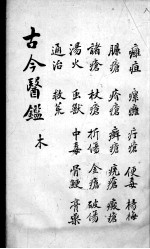 癰疽 瘰癧 疔瘡 便毒 楊梅
臁瘡 疥瘡 癬瘡 禿瘡 癜瘡
諸瘡 杖瘡 折傷 金瘡 破傷
湯火 虫獸 中毒 骨鯁 膏藥
通治 救荒
古今醫鑑 木